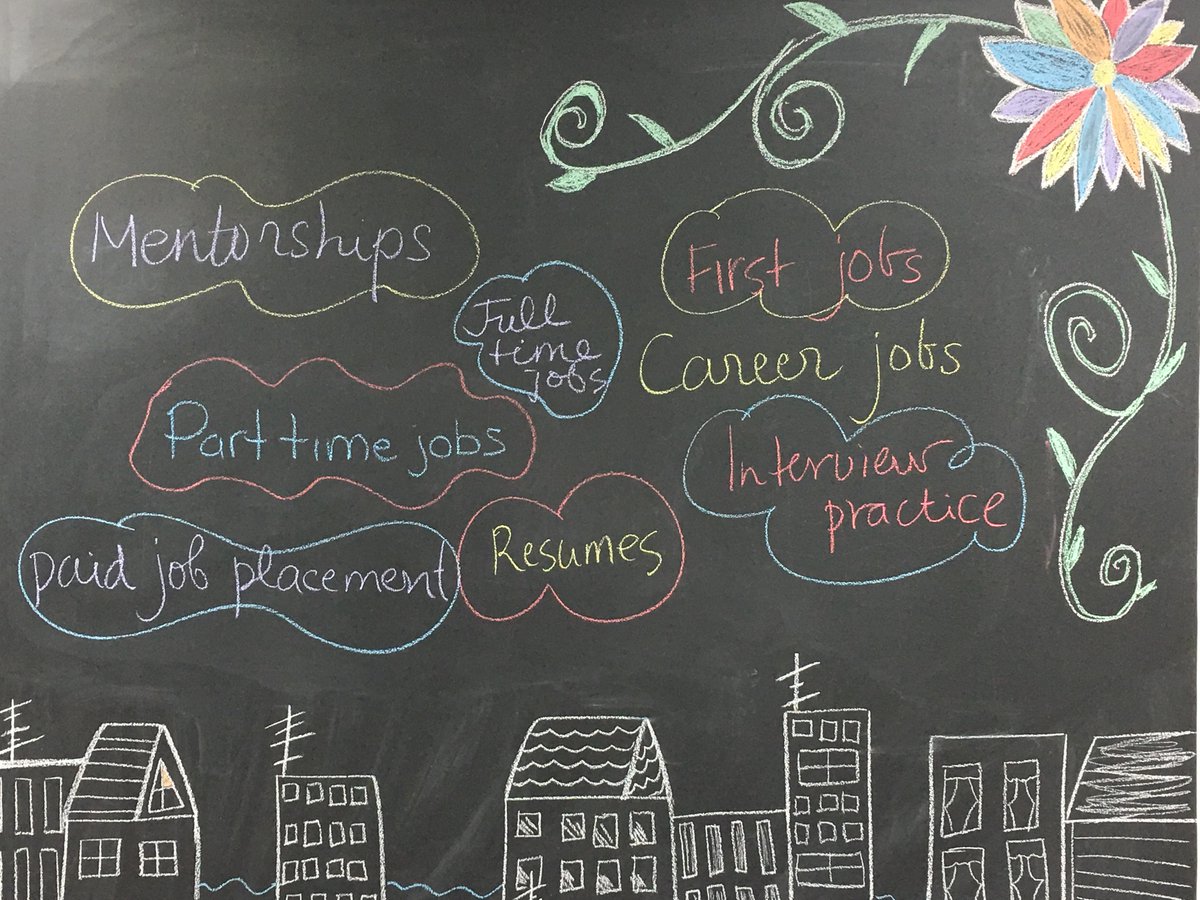 Mentorships
First jobs
Full
time
jobs
Career jobs
Part time jobs
Interview
practice
paid job placement
Resumes